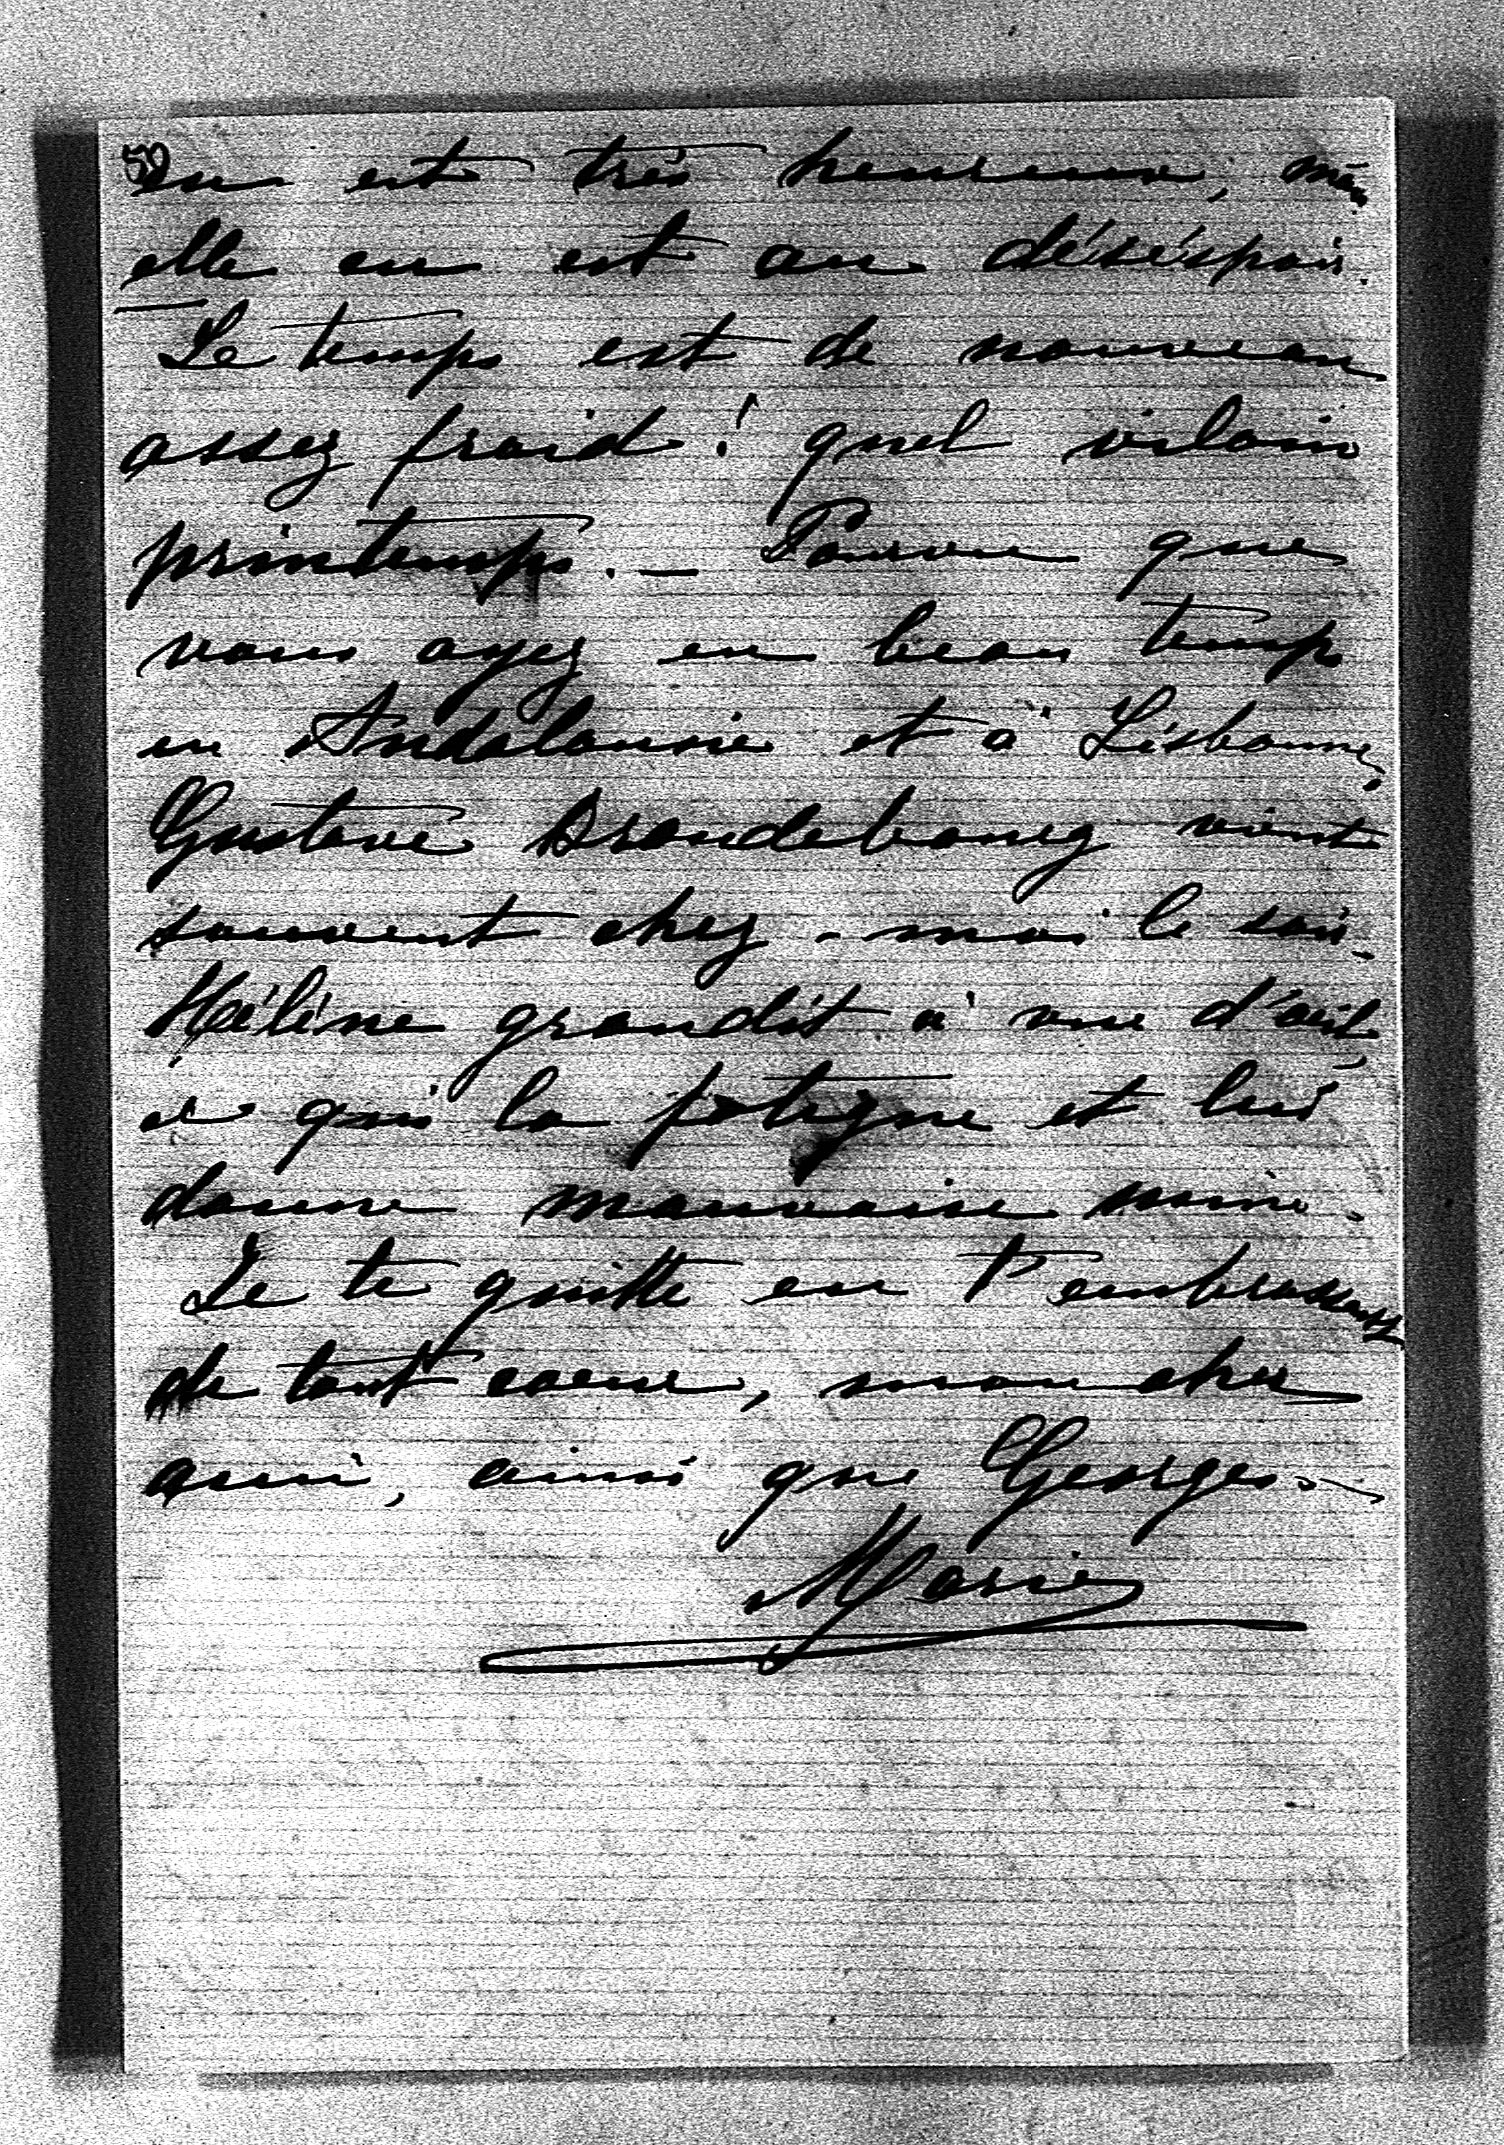 52
en est très heureux, mais
elle en est au désespoir.
Le temps est de nouveau
assez froid ! quel vilain
printemps. — Pourvu que
vous ayez eu beau temps
en Andalousie et à Lisbonne.
Gustave Brandebourg vient
souvent chez-moi le soir.
Hélène grandit à vue d'œil,
ce qui la fatigue et lui
donne mauvaise mine.
Je te quitte en t'embrassant
de tout coeur, mon cher
ami, ainsi que Georges. —
Marie